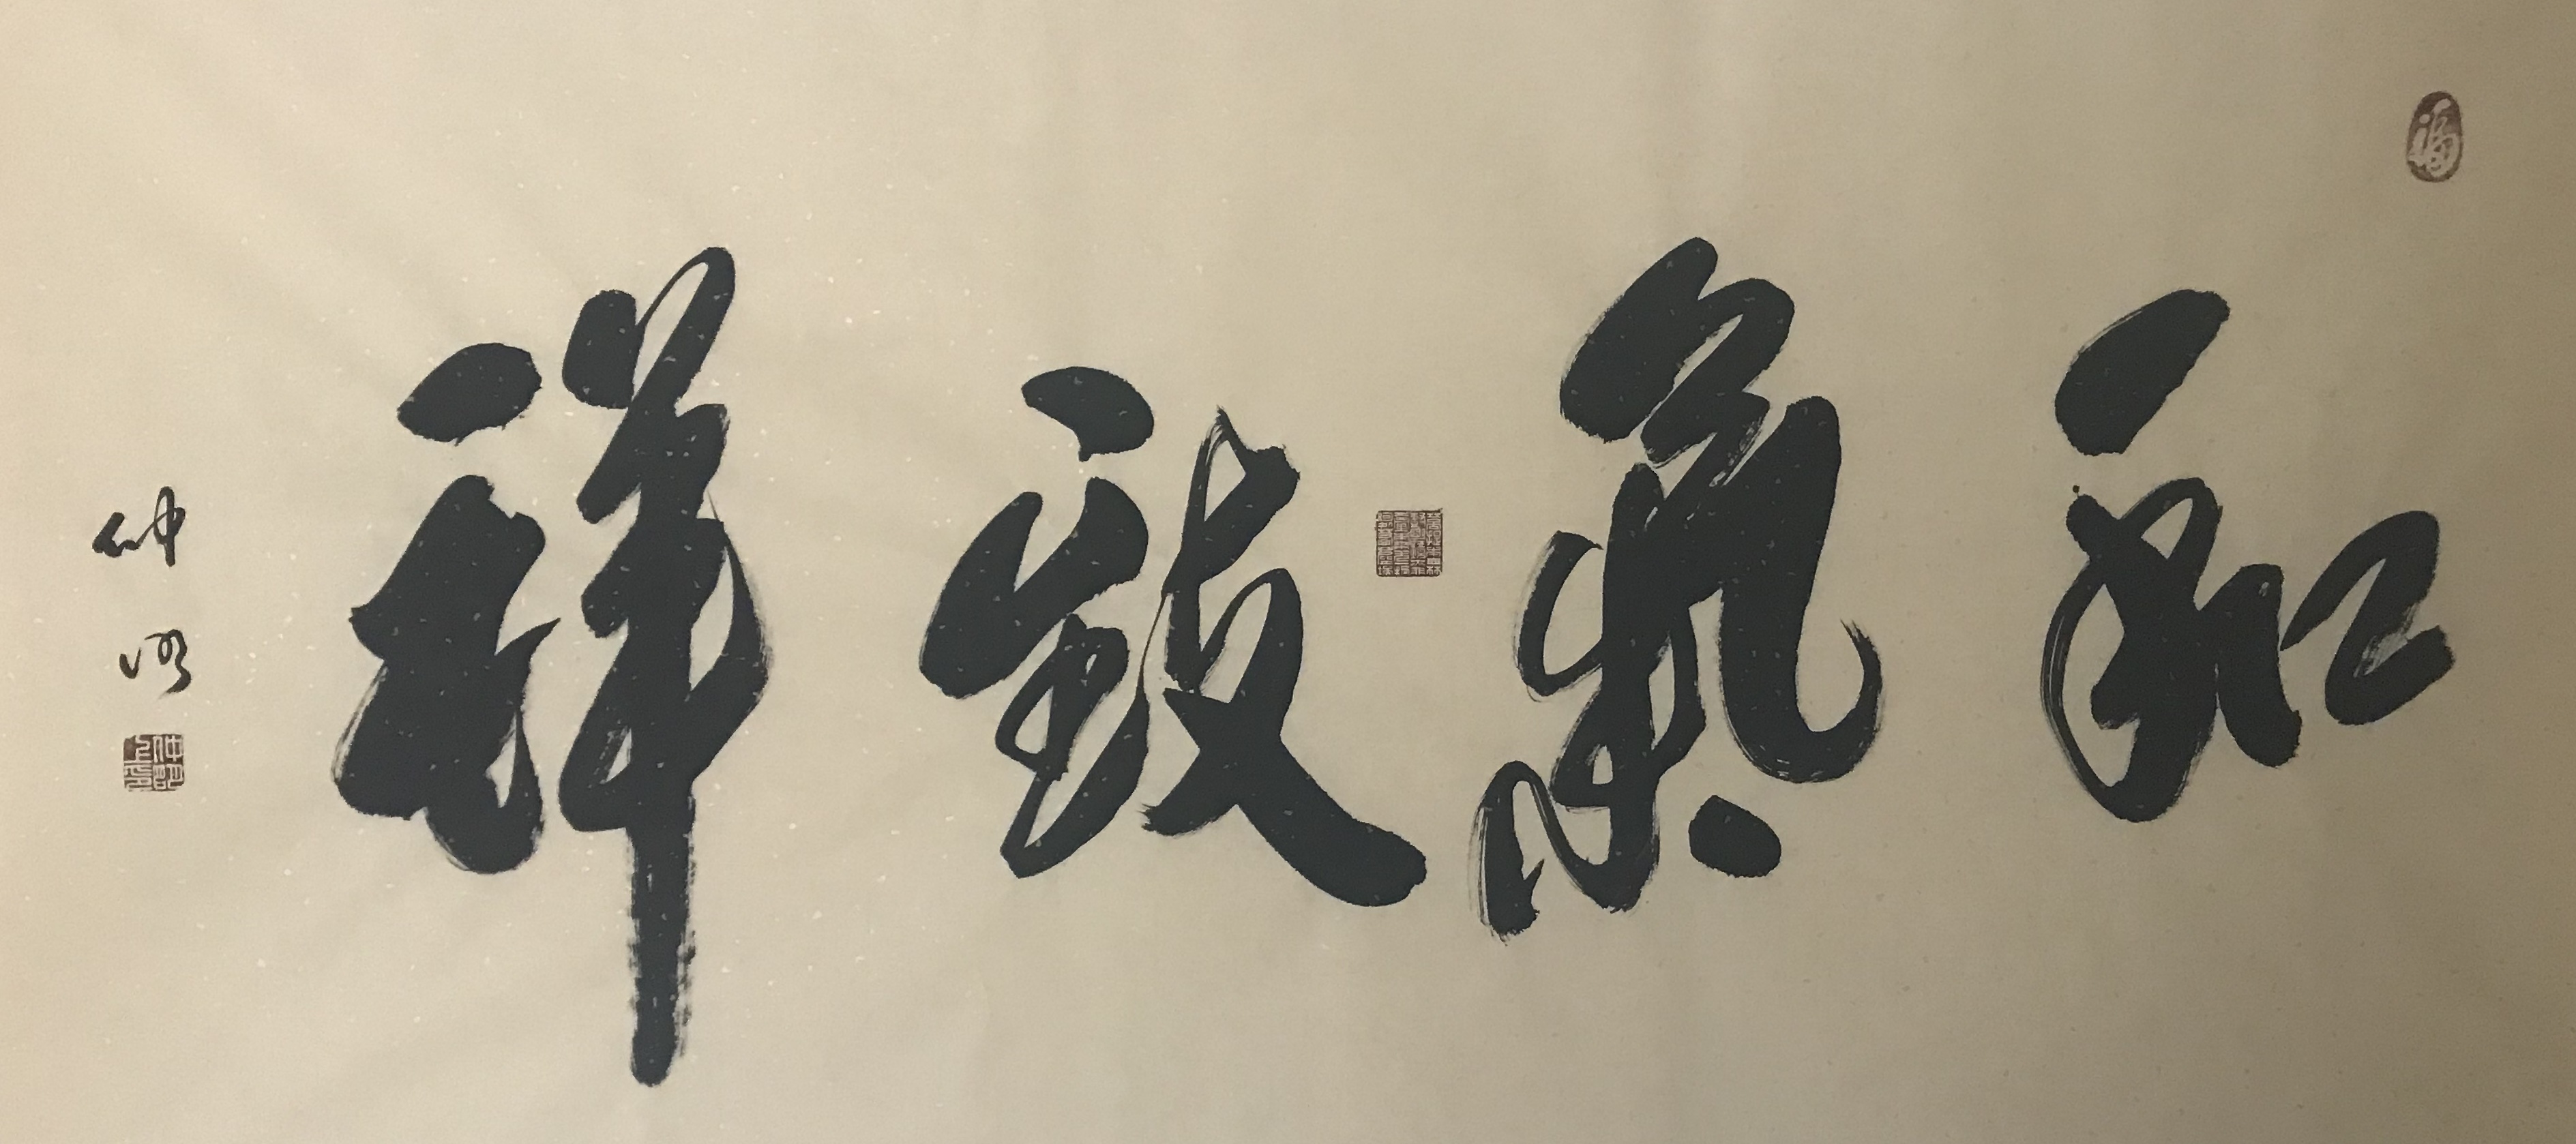 和氣致祥
仲明
福